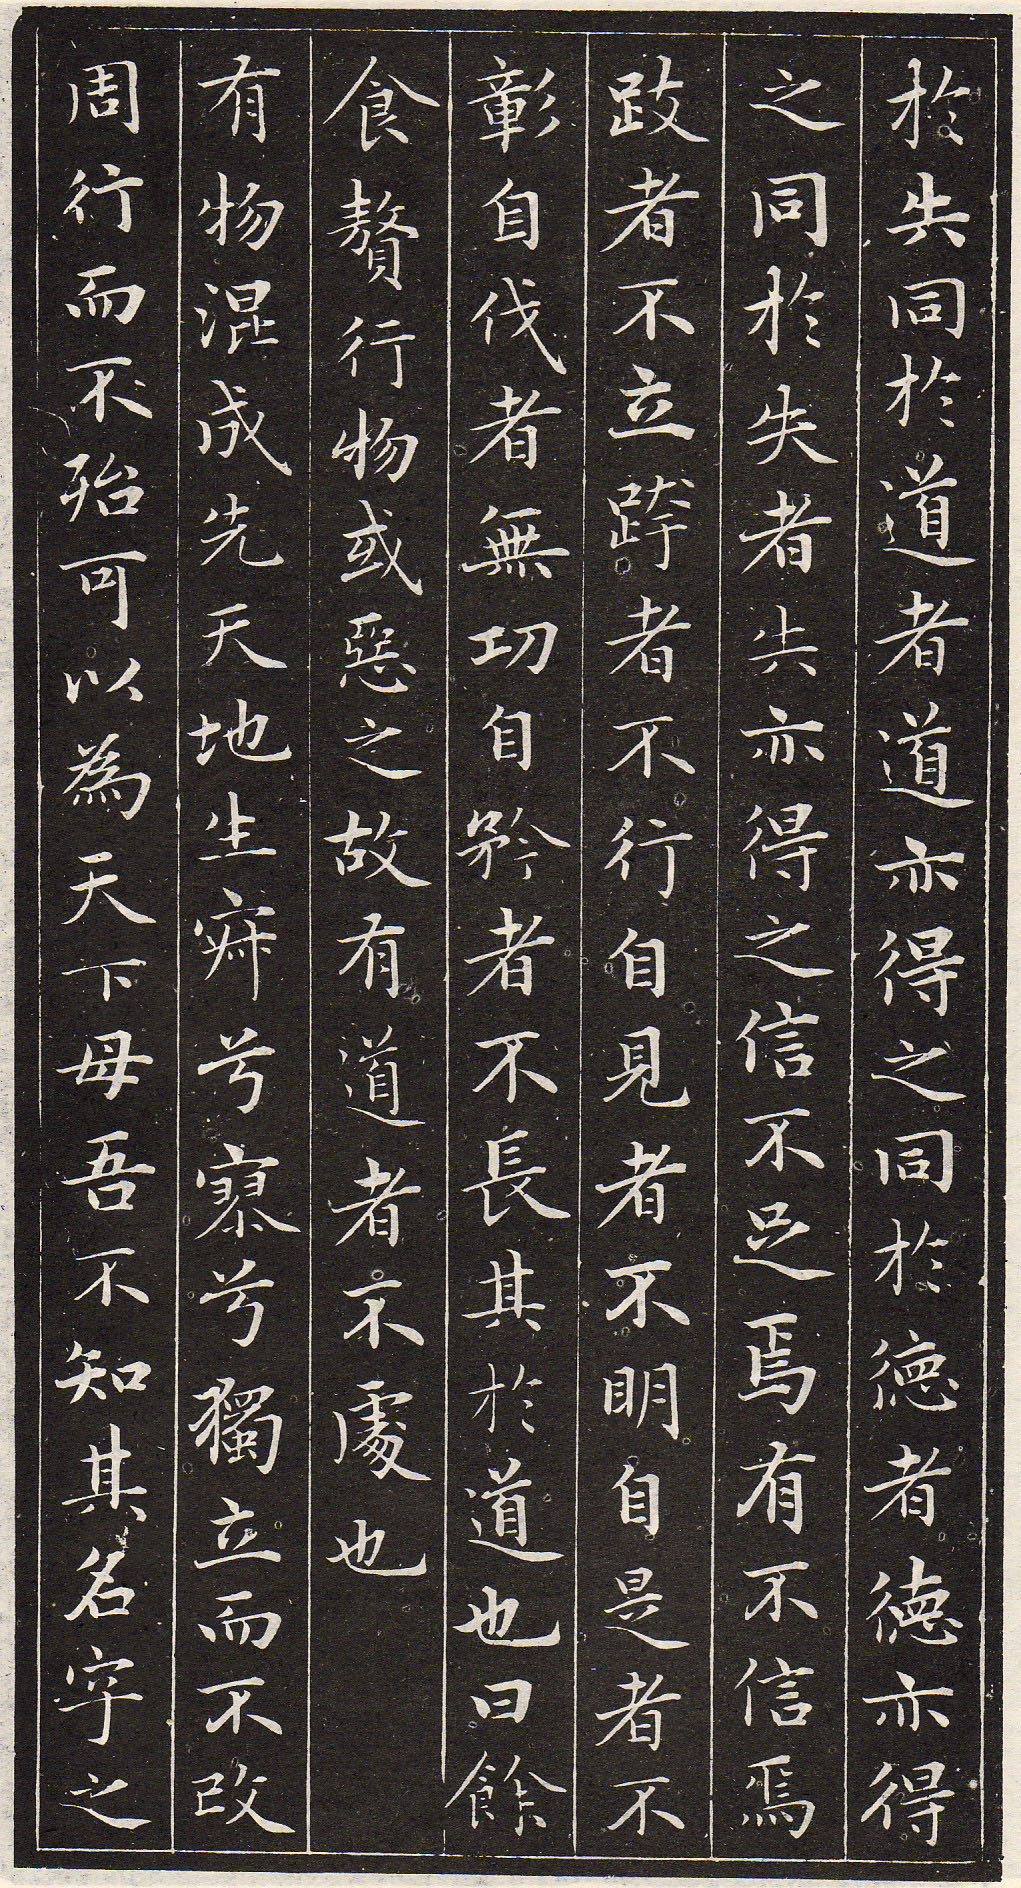 於失同於道者道亦得之同於德者德亦得
之同於失者失亦得之信不足焉有不信焉
跂者不立跨者不行自見者不明自是者不
彰自伐者無功自矜者不長其於道也曰餘
食贅行物或惡之故有道者不處也
有物混成先天地生寂兮寥兮獨立而不改
周行而不殆可以為天下母吾不知其名字之